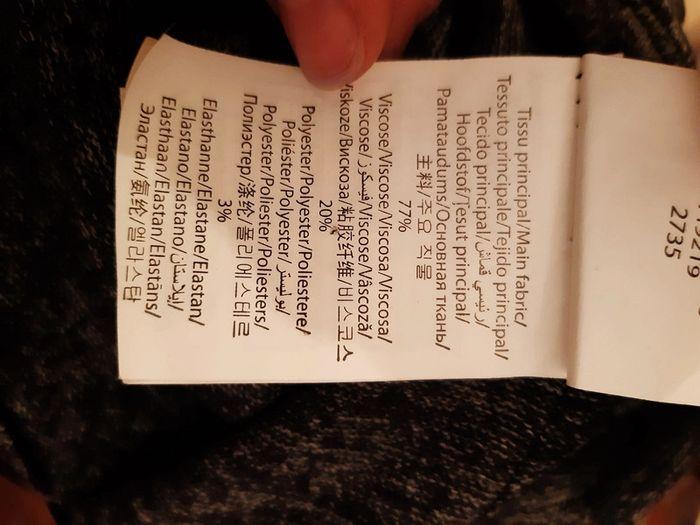 2735
Tissu principal/Main fabric/
Tessuto principale/Tejido principal/
Tecido principal/قماش رئيسي/
Hoofdstof/Țesut principal/
Pamataudums/Основная ткань/
主料/주요 직물
77%
Viscose/Viscose/Viscosa/Viscosa/
Viscose/فيسكوز/Viscose/Vâscoză/
Viskoze/Вискоза/粘胶纤维/비스코스
20%
Polyester/Polyester/Poliestere/
Poliéster/Polyester/بوليستر/
Polyester/Poliester/Poliesters/
Полиэстер/涤纶/폴리에스테르
3%
Elasthanne/Elastane/Elastan/
Elastano/Elastano/إيلاستان/
Elasthaan/Elastan/Elastāns/
Эластан/氨纶/엘라스탄